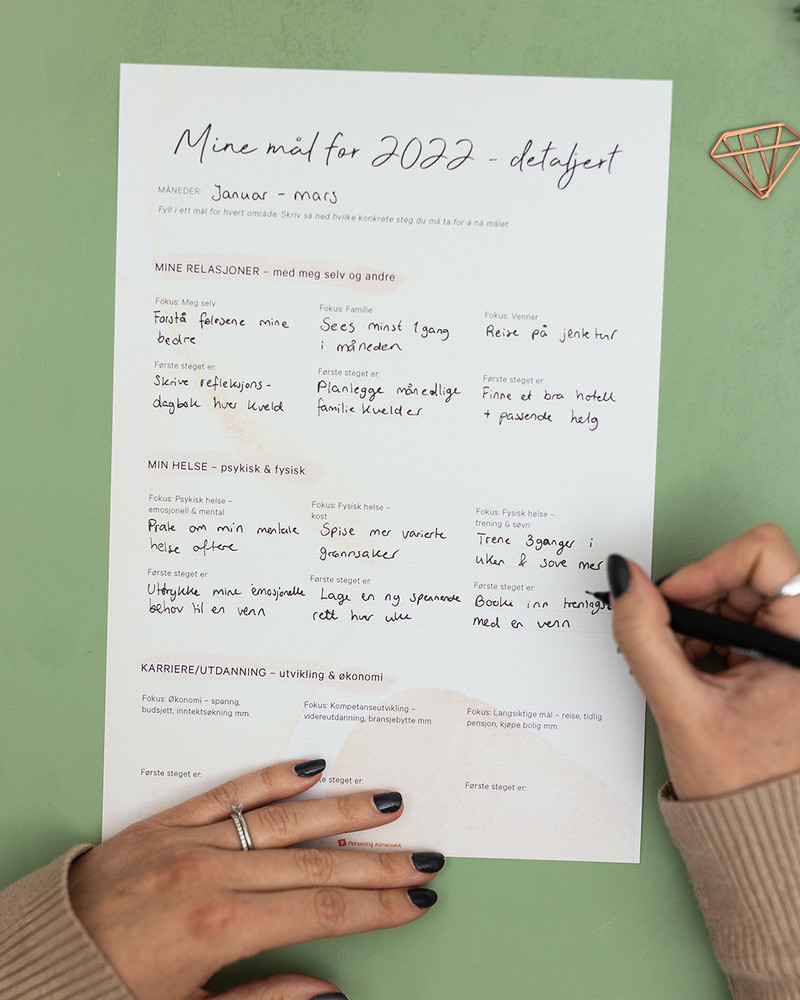 Mine mål for 2022 - detaljert
MÅNEDER: Januar - mars
Fyll i ett mål for hvert område. Skriv så ned hvilke konkrete steg du må ta for å nå målet.
MINE RELASJONER – med meg selv og andre
Fokus: Meg selv
Forstå følelsene mine
bedre
Første steget er:
Skrive refleksjons-
dagbok hver kveld
Fokus: Familie
Sees minst 1 gang
i måneden
Første steget er:
Planlegge månedlige
familiekvelder
Fokus: Venner
Reise på jentetur
Første steget er:
Finne et bra hotell
+ passende helg
MIN HELSE – psykisk & fysisk
Fokus: Psykisk helse –
emosjonell & mental
Prate om min mentale
helse oftere
Første steget er:
Uttrykke mine emosjonelle
behov til en venn
Fokus: Fysisk helse –
kost
Spise mer varierte
grønnsaker
Første steget er:
Lage en ny spennende
rett hver uke
Fokus: Fysisk helse –
trening & søvn
Trene 3 ganger i
uken & sove mer
Første steget er:
Booke inn trenings
med en venn
KARRIERE/UTDANNING – utvikling & økonomi
Fokus: Økonomi – sparing,
budsjett, inntektsøkning mm.
Første steget er:
Fokus: Kompetanseutvikling –
videreutdanning, bransjebytte mm.
te steget er:
Fokus: Langsiktige mål – reise, tidlig
pensjon, kjøpe bolig mm.
Første steget er:
Personlig Almanakk